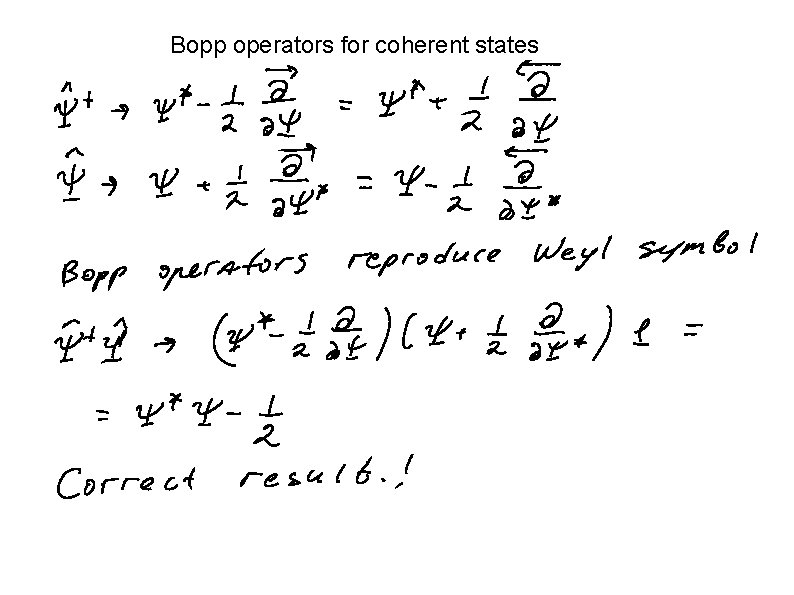 Bopp operators for coherent states
Ψ̂† → Ψ* - 1/2 ∂⃗/∂Ψ = Ψ* + 1/2 ∂⃖/∂Ψ
Ψ̂ → Ψ + 1/2 ∂⃗/∂Ψ* = Ψ - 1/2 ∂⃖/∂Ψ*
Bopp operators reproduce Weyl symbol
Ψ̂†Ψ̂ → (Ψ* - 1/2 ∂/∂Ψ)(Ψ + 1/2 ∂/∂Ψ*) 1 =
= Ψ*Ψ - 1/2
Correct result.!